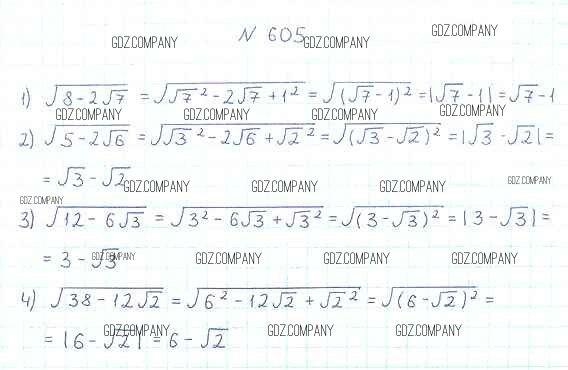 № 605
GDZ.COMPANY GDZ.COMPANY GDZ.COMPANY
1) √(8 - 2√7) = √(√7² - 2√7 + 1²) = √((√7 - 1)²) = |√7 - 1| = √7 - 1
GDZ.COMPANY GDZ.COMPANY GDZ.COMPANY GDZ.COMPANY
2) √(5 - 2√6) = √(√3² - 2√6 + √2²) = √((√3 - √2)²) = |√3 - √2| =
= √3 - √2
GDZ.COMPANY GDZ.COMPANY GDZ.COMPANY GDZ.COMPANY
GDZ.COMPANY
3) √(12 - 6√3) = √(3² - 6√3 + √3²) = √((3 - √3)²) = |3 - √3| =
= 3 - √3
GDZ.COMPANY GDZ.COMPANY GDZ.COMPANY GDZ.COMPANY
4) √(38 - 12√2) = √(6² - 12√2 + √2²) = √((6 - √2)²) =
= |6 - √2| = 6 - √2
GDZ.COMPANY GDZ.COMPANY GDZ.COMPANY